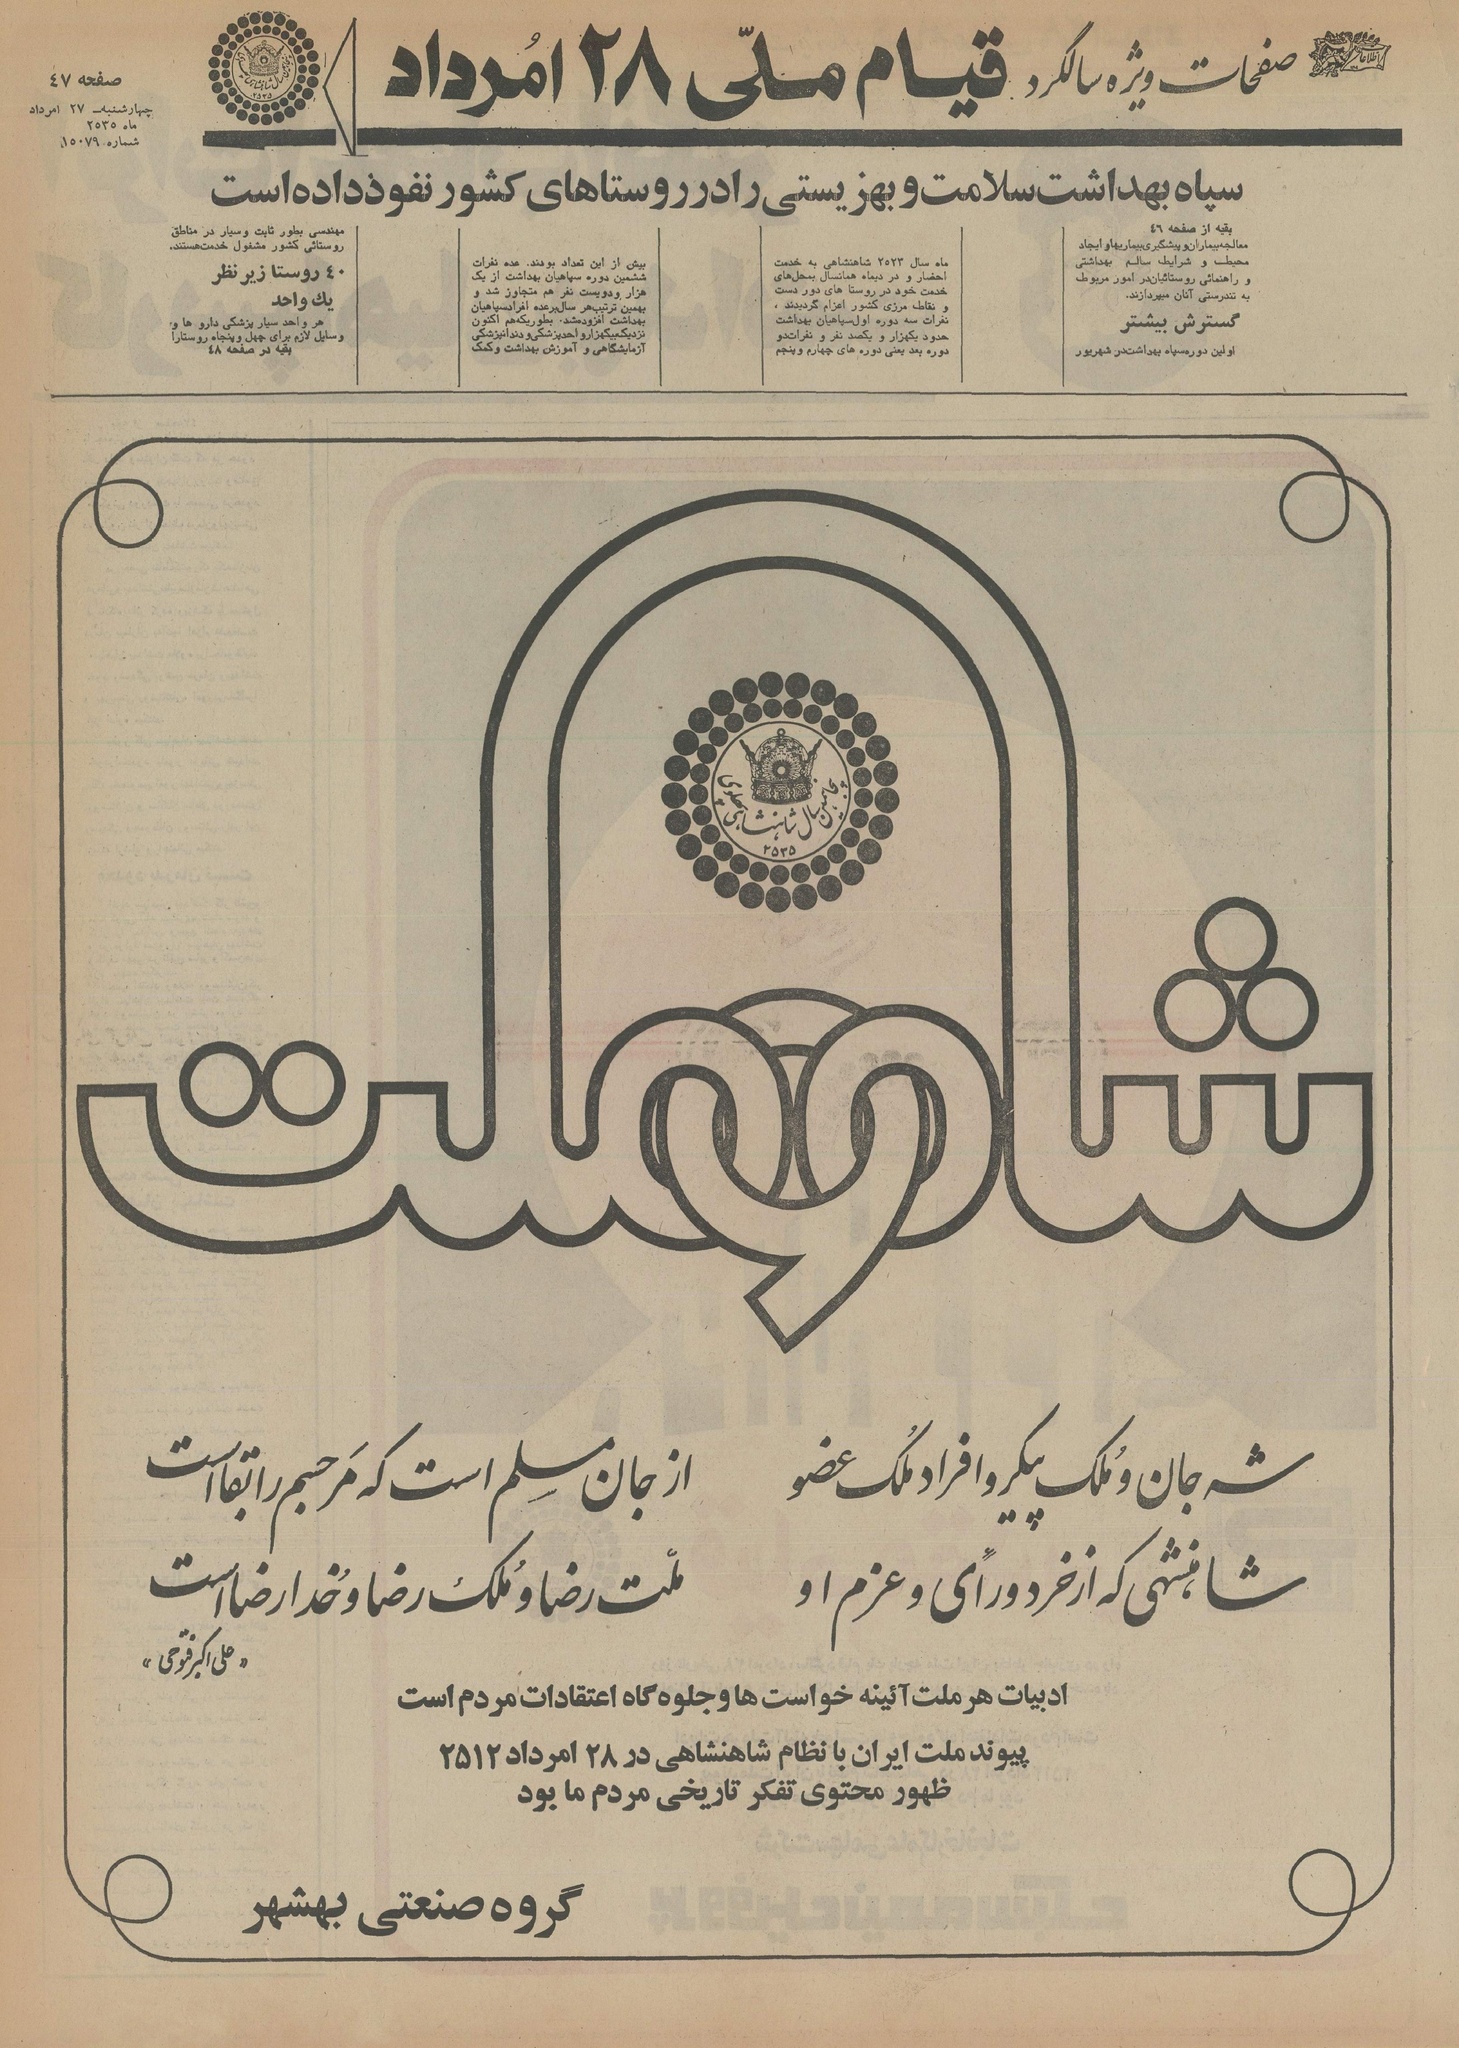 صفحات ویژه سالگرد
قیام ملّی ۲۸ اَمُرداد
صفحه ۴۷
چهارشنبه ۲۷ امرداد
ماه ۲۵۳۵
شماره ۱۵۰۷۹
سپاه بهداشت سلامت و بهزیستی را در روستاهای کشور نفوذ داده است
بقیه از صفحه ۴۶
معالجه بیماران و پیشگیری بیماریها و ایجاد
محیط و شرایط سالم بهداشتی
و راهنمائی روستائیان در امور مربوط
به تندرستی آنان میپردازند.
گسترش بیشتر
اولین دوره سپاه بهداشت در شهریور
ماه سال ۲۵۲۳ شاهنشاهی به خدمت
احضار و در دیماه همانسال بمحل‌های
خدمت خود در روستا های دور دست
و نقاط مرزی کشور اعزام گردیدند ،
نفرات سه دوره اول سپاهیان بهداشت
حدود یکهزار و یکصد نفر و نفرات دو
دوره بعد یعنی دوره های چهارم و پنجم
بیش از این تعداد بودند. عده نفرات
ششمین دوره سپاهیان بهداشت از یک
هزار و دویست نفر هم متجاوز شد و
بهمین ترتیب هر سال بر عده افراد سپاهیان
بهداشت افزوده شد. بطوریکه هم اکنون
نزدیک بیکهزار واحد پزشکی و دندانپزشکی
آزمایشگاهی و آموزش بهداشت و کمک
مهندسی بطور ثابت و سیار در مناطق
روستائی کشور مشغول خدمت هستند.
۴۰ روستا زیر نظر
یک واحد
هر واحد سیار پزشکی دارو ها و
وسایل لازم برای چهل و پنجاه روستا را
بقیه در صفحه ۴۸
پنجاهمین سال شاهنشاهی پهلوی
۲۵۳۵
شاه و ملت
شه جان و مُلک پیکر و افراد مُلک عضو
از جان مسلِم است که مَر جسم را بقا است
شاهنشهی که از خرد و رأی و عزم او
ملّت رضا و مُلک رضا و خُدا رضا است
«علی اکبر فتوحی»
ادبیات هر ملت آئینه خواست ها و جلوه گاه اعتقادات مردم است
پیوند ملت ایران با نظام شاهنشاهی در ۲۸ امرداد ۲۵۱۲
ظهور محتوی تفکر تاریخی مردم ما بود
گروه صنعتی بهشهر